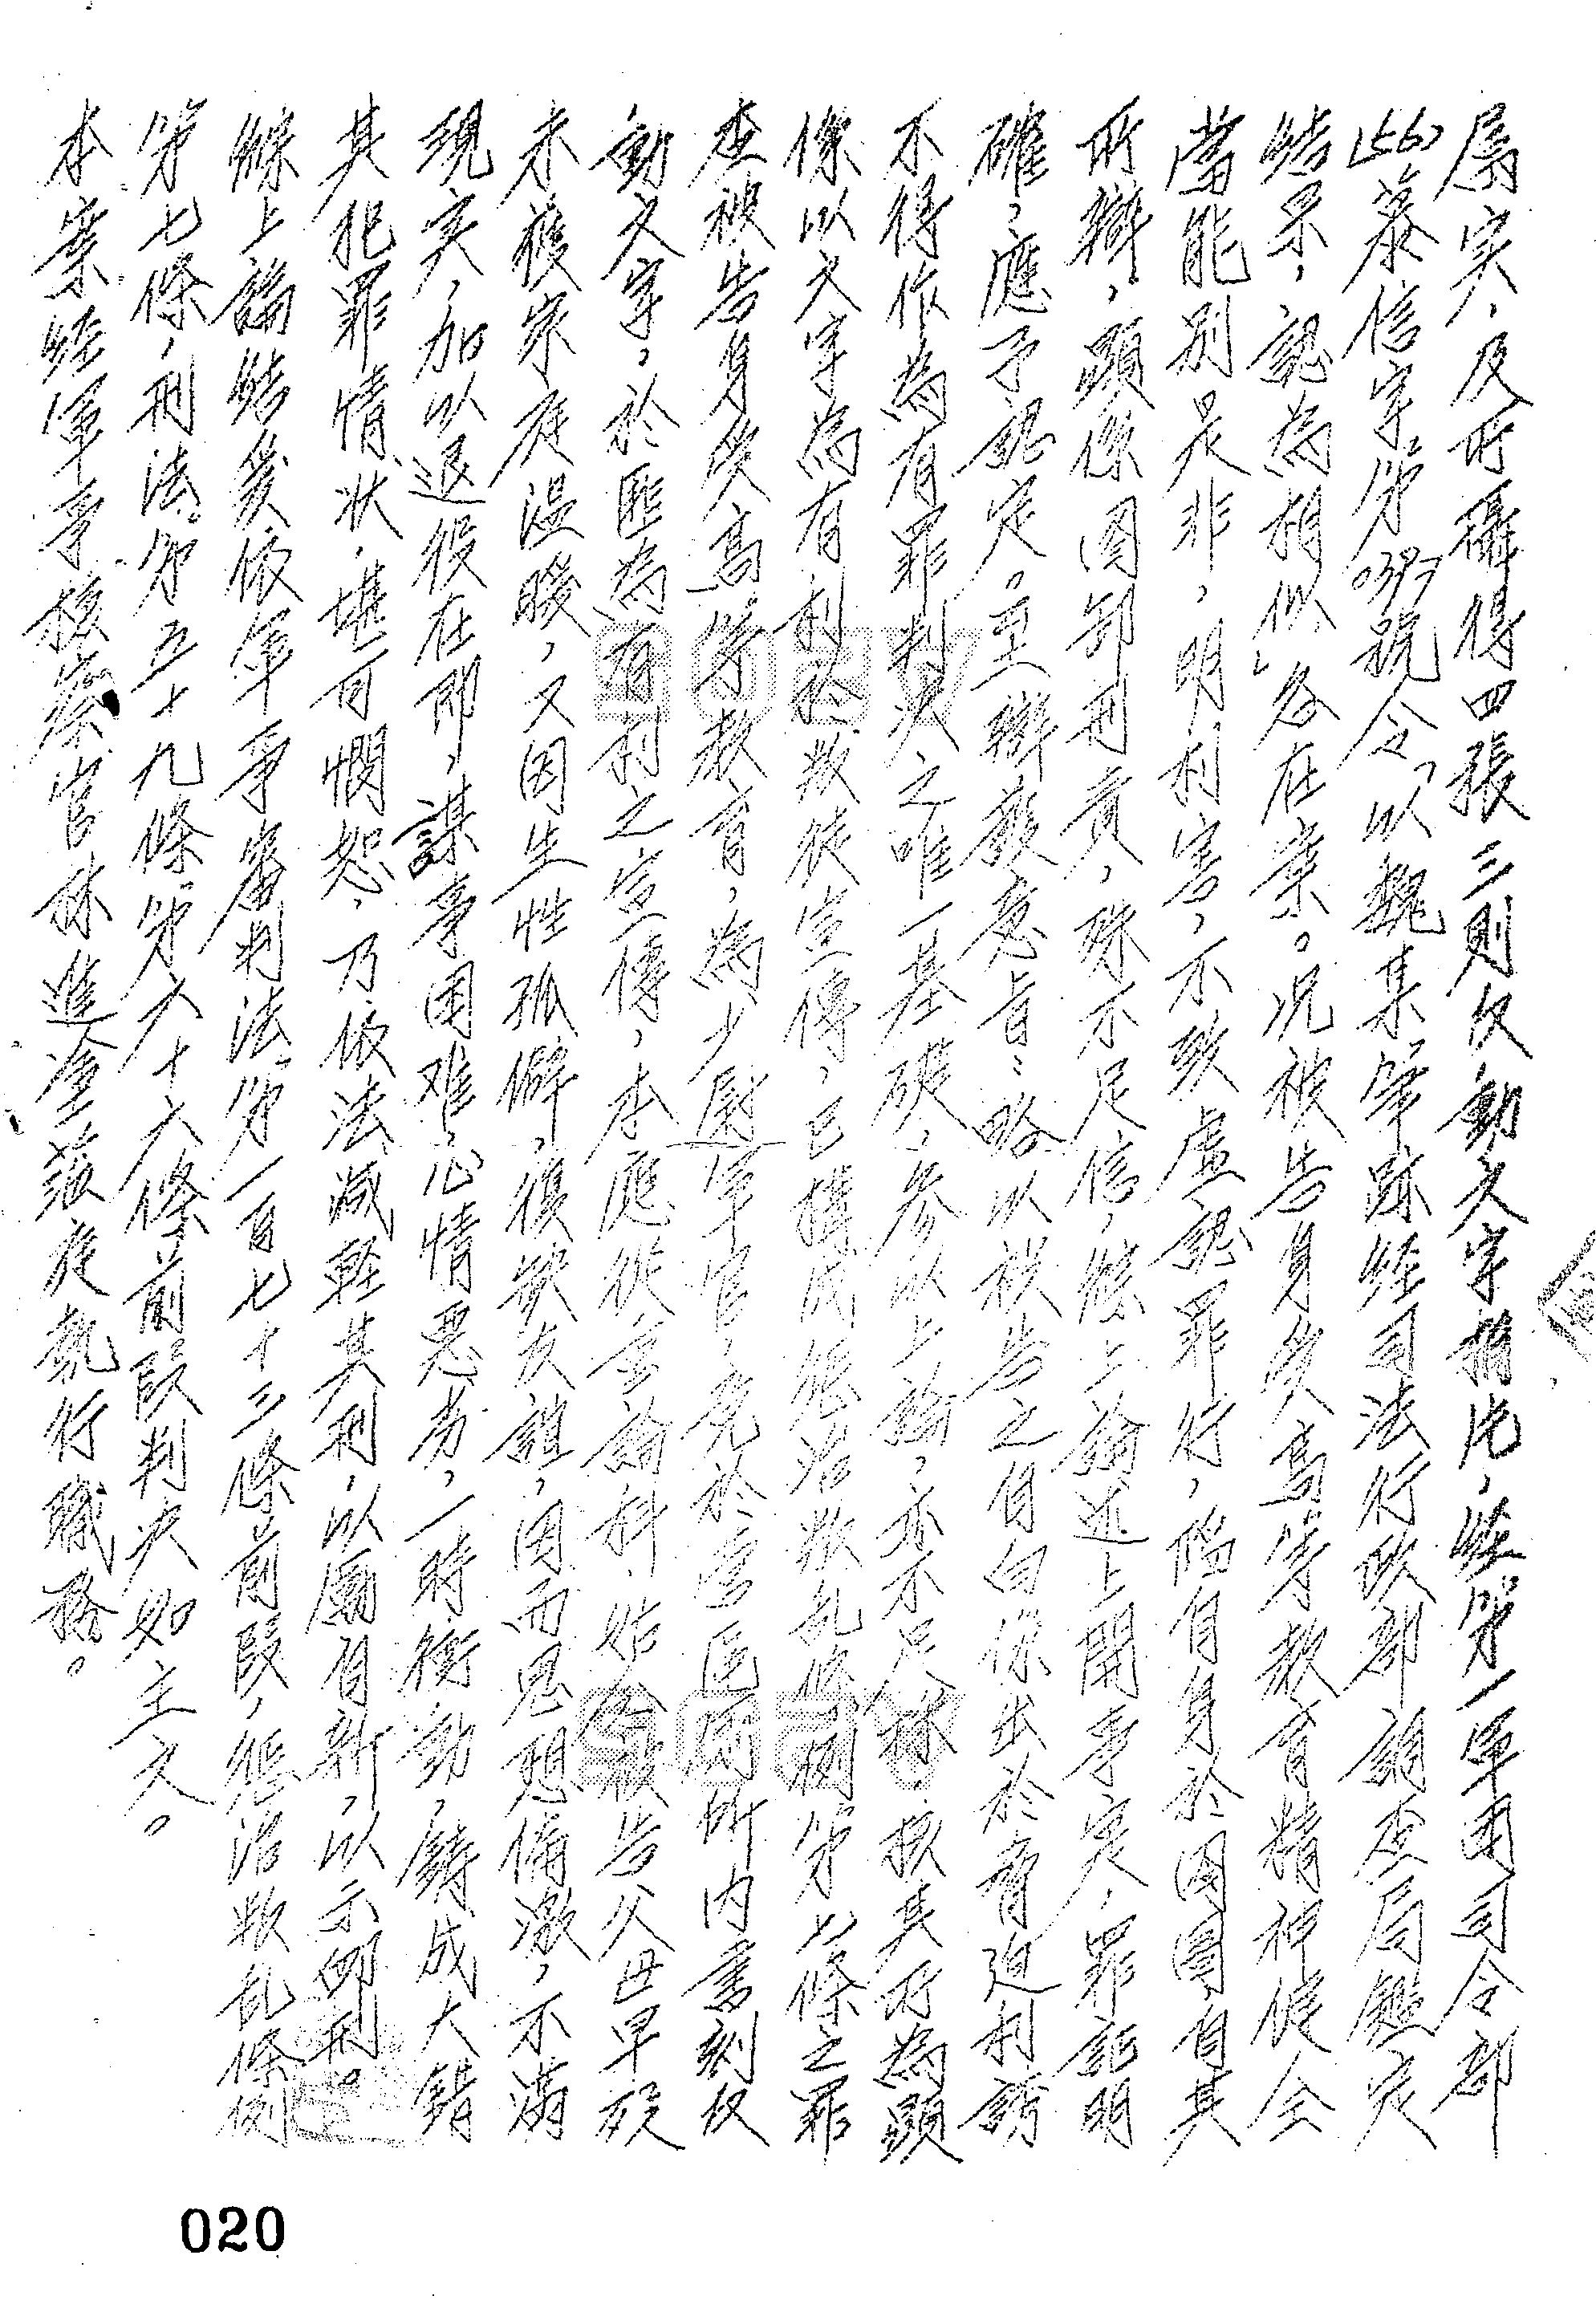 屬實，及所攝得四張三則仅動文字攝片，經第一軍团司令部
(56)慕信字第0397號令，以魏某筆跡經司法行政部調查局鑑定
結果，認為相似，各在案。况被告身受高等教育精神健全
當能別是非，明利害，不致虛認罪行，陷自身於囹圄，自其
所辯，顯係圖卸刑責，殊不足信，綜上論述上開事实，罪証明
確，應予認定。至辯護意旨：略以被告之自白係出於脅迫利誘
不得作為有罪判決之唯一基礎，參以上論，亦不足採。核其所為顯
係以文字為有利於叛徒宣傳，已構成懲治叛乱條例第七條之罪
查被告身受高等教育，為少尉軍官，竟於營區厠所内書刻仅
動文字，於匪為有利之宣傳，本應從重論科，姑念被告父母早殁
未獲家庭溫暖，又因生性孤僻，復缺友誼，因而思想偏激，不滿
現实，加以退役在即，謀事困难，心情惡劣，一時衝動，鑄成大錯
其犯罪情狀，堪可憫恕，乃依法減輕其刑，以勵自新，以示卹刑。
綜上論結爰依軍事審判法第一百七十三條前段，懲治叛乱條例
第七條，刑法第五十九條第六十六條前段判決如主文。
本案經軍事檢察官林進塗蒞庭執行職務。
020